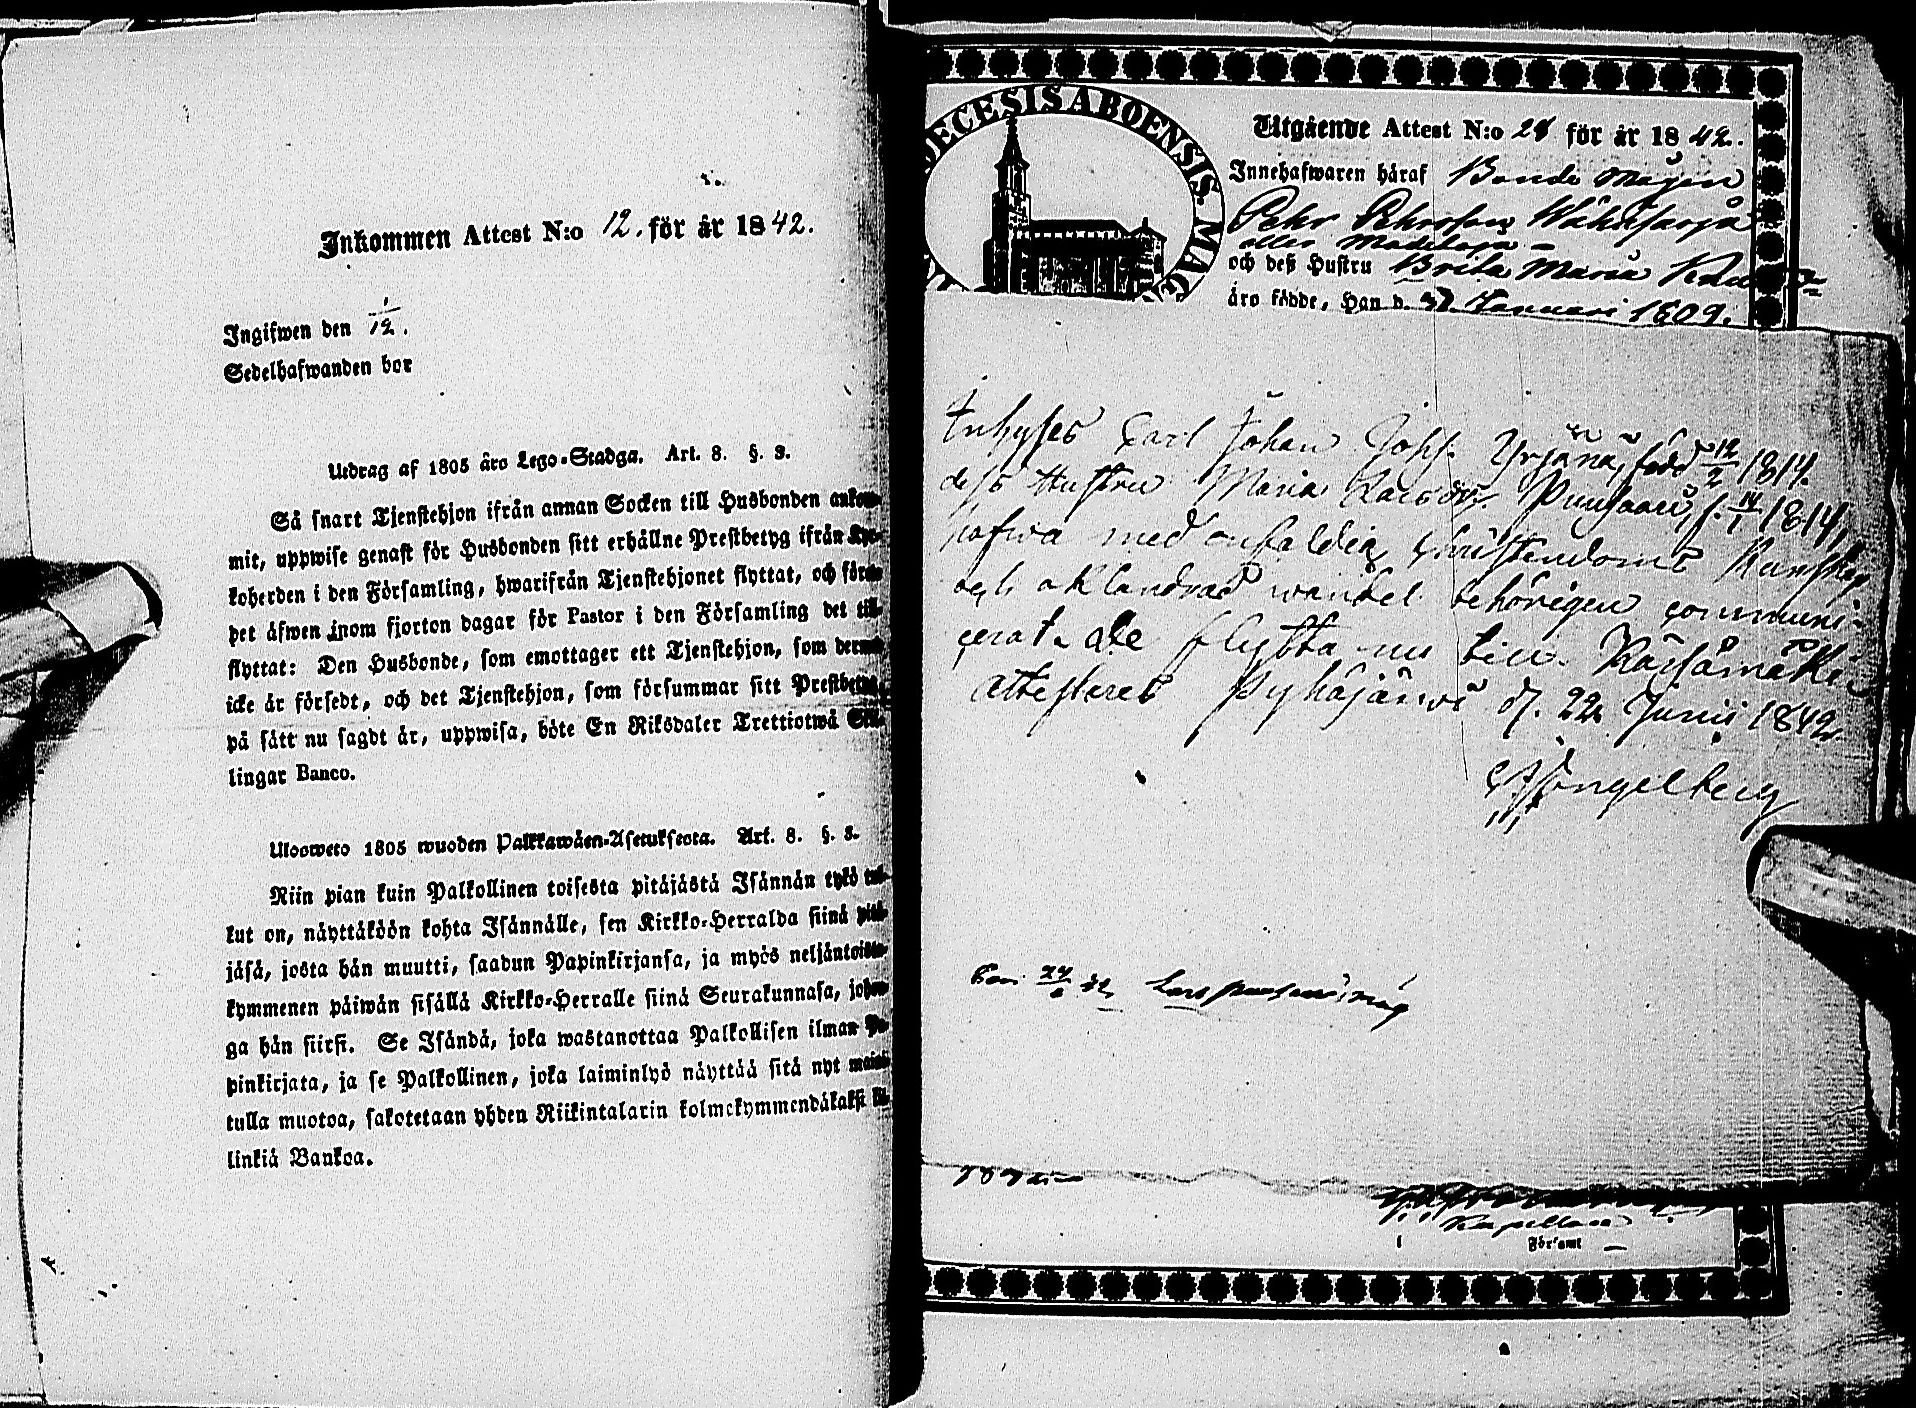 Inkommen Attest N:o 12. för år 1842.
Ingifwen den 1/12.
Sedelhafwanden bor
Utdrag af 1805 års Lego-Stadga. Art. 8. §. 3.
Så snart Tjenstehjon ifrån annan Socken till Husbonden ankom-
mit, uppwise genast för Husbonden sitt erhållne Prestbetyg ifrån Kyr-
koherden i den Församling, hwarifrån Tjenstehjonet flyttat, och före-
pet äfwen inom fjorton dagar för Pastor i den Församling det till-
flyttat: Den Husbonde, som emottager ett Tjenstehjon, som dermed
icke är försedt, och det Tjenstehjon, som försummar sitt Prestbetyg,
på sätt nu sagdt är, uppwisa, böte En Riksdaler Trettiotwå Skil-
lingar Banco.
Ulosweto 1805 wuoden Palkkawäen-Asetuksesta. Art. 8. §. 3.
Niin pian kuin Palkollinen toisesta pitäjästä Isännän tykö tul-
lut on, näyttäköön kohta Isännälle, sen Kirkko-Herralda siinä pitä-
jäsä, josta hän muutti, saadun Papinkirjansa, ja myös neljäntoista-
kymmenen päiwän sisällä Kirkko-Herralle siinä Seurakunnasa, johon-
ga hän siirsi. Se Isändä, joka wastanottaa Palkollisen ilman Pa-
pinkirjata, ja se Palkollinen, joka laiminlyö näyttää sitä nyt maini-
tulla muotoa, sakotetaan yhden Riikintalarin kolmekymmendäkaksi kil-
linkiä Bankoa.
DIECESIS ABOENSIS. MAG
Utgående Attest N:o 28 för år 1842.
Innehafwaren häraf Bonde mågen
Pehr Pehrsson
eller
och deß Hustru Brita Maria
äro födde, Han d. Januari 1809.
Inhyses Carl Johan Johss. Yrjänä, född 12/2 1814.
dess Hustru Maria Larsdr. Puusaari, f. 14/1 1814,
hafwa med enfaldig Christendoms Kunskap
och oklandrad wandel behörigen communi-
cerat. de flytta nu till Kärsämäki
attesteras Pyhäjärwi d. 22 Junii 1842.
Engelberg
Lars
Kapellan
Församl